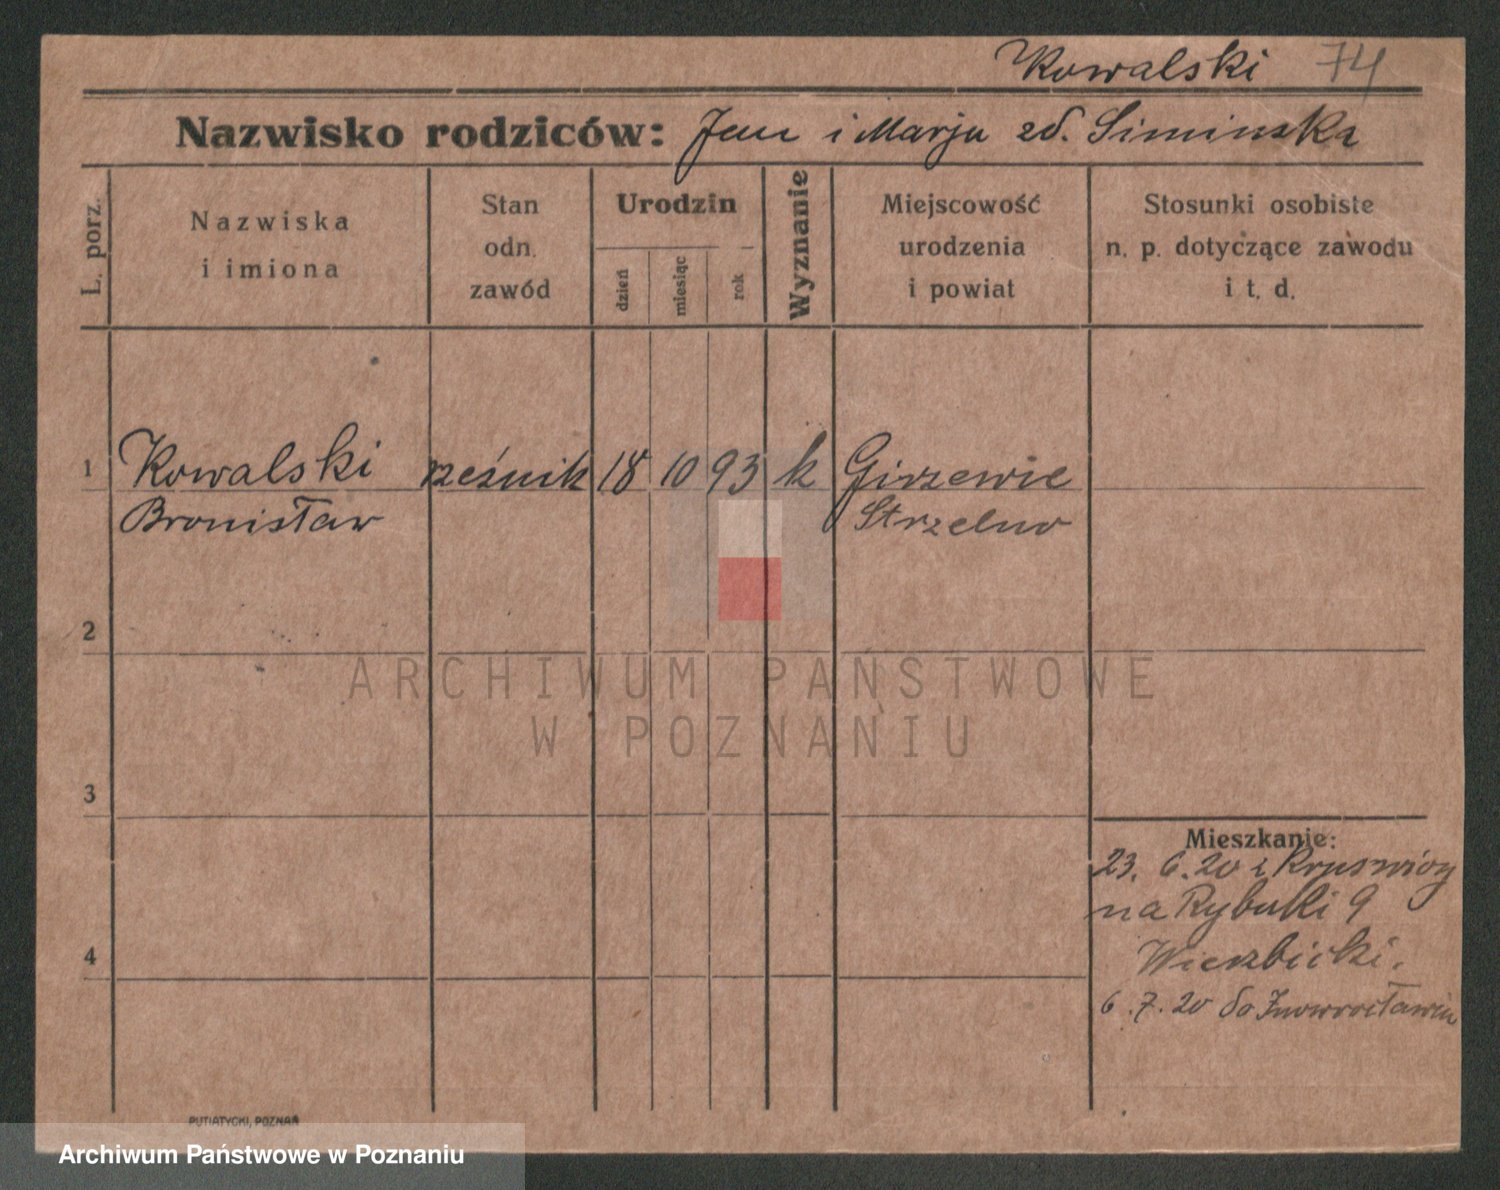 Kowalski 74
Nazwisko rodziców: Jan i Marja zd. Siminska
L. porz.
Nazwiska
i imiona
Stan
odn.
zawód
Urodzin
dzień
miesiąc
rok
Wyznanie
Miejscowość
urodzenia
i powiat
Stosunki osobiste
n. p. dotyczące zawodu
i t. d.
1 Kowalski rzeźnik 18 10 93 k Girzewie
Bronisław Strzelno
2
3
4
Mieszkanie:
23. 6. 20 z Kruswicy
na Rybaki 9
Wierzbicki.
6. 7. 20 do Inowrocławia
PUTIATYCKI, POZNAŃ
ARCHIWUM PAŃSTWOWE
W POZNANIU
Archiwum Państwowe w Poznaniu